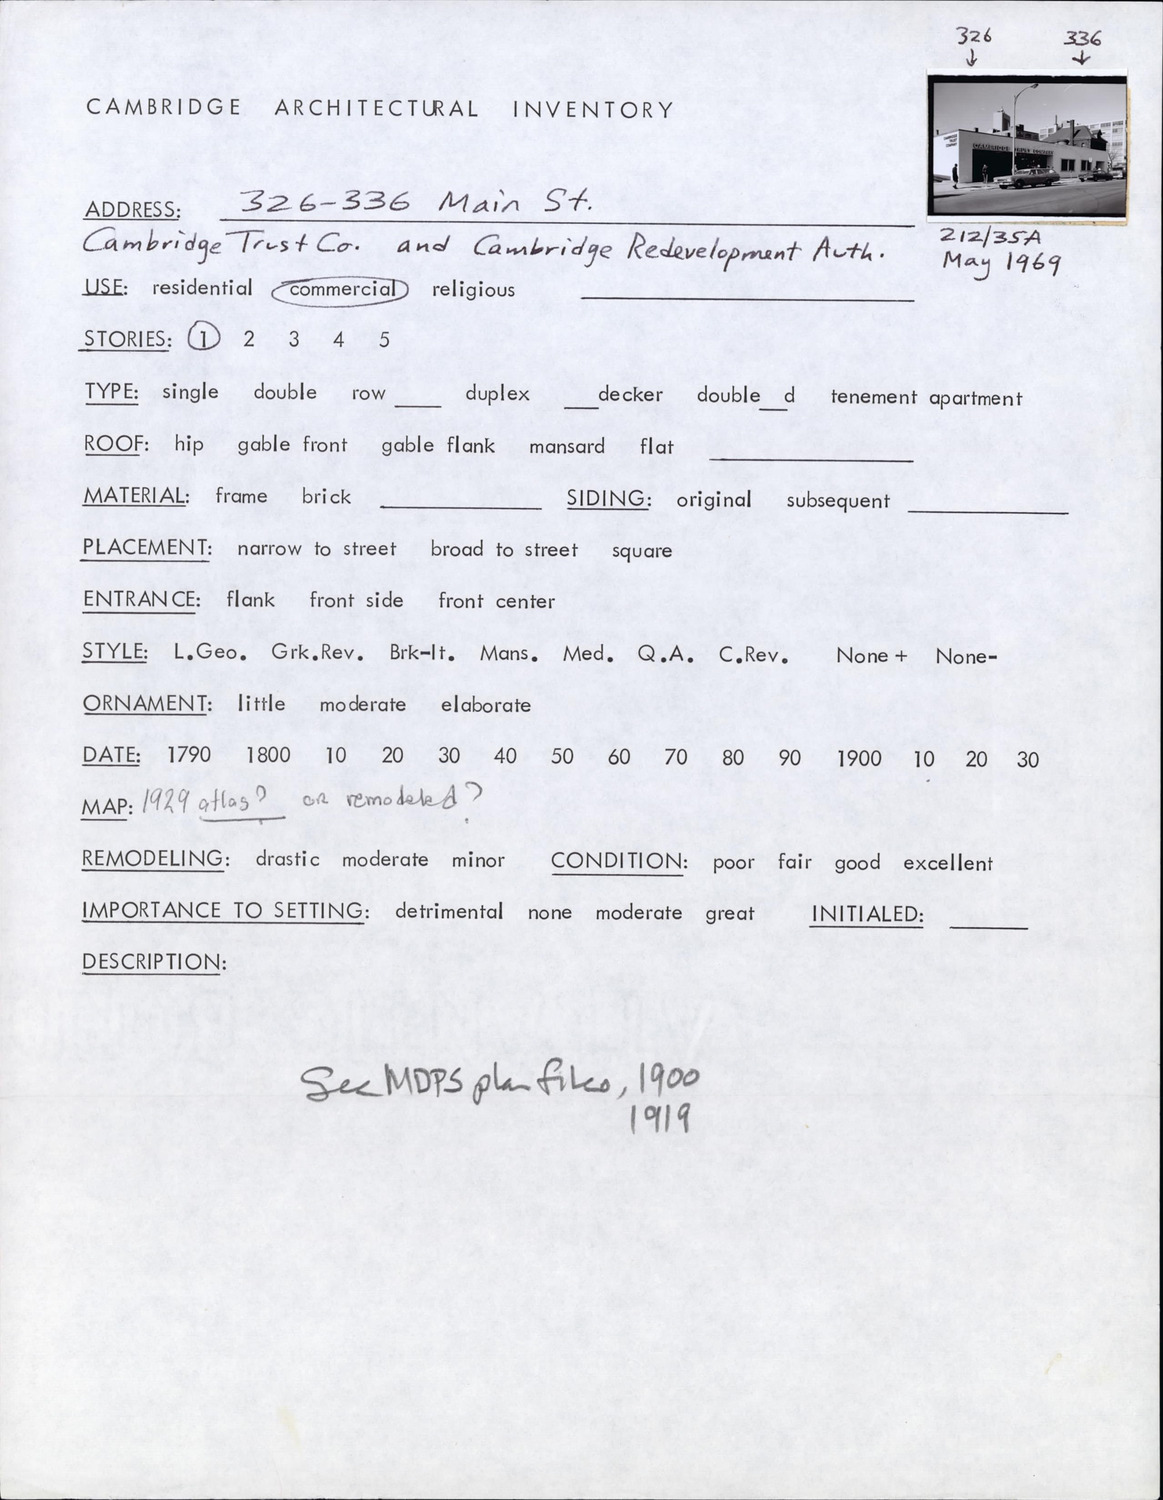 326 336
CAMBRIDGE ARCHITECTURAL INVENTORY
ADDRESS: 326-336 Main St.
Cambridge Trust Co. and Cambridge Redevelopment Auth.
212/35A
May 1969
USE: residential commercial religious
STORIES: 1 2 3 4 5
TYPE: single double row ___ duplex ___decker double__d tenement apartment
ROOF: hip gable front gable flank mansard flat
MATERIAL: frame brick SIDING: original subsequent
PLACEMENT: narrow to street broad to street square
ENTRANCE: flank front side front center
STYLE: L.Geo. Grk.Rev. Brk-It. Mans. Med. Q.A. C.Rev. None + None-
ORNAMENT: little moderate elaborate
DATE: 1790 1800 10 20 30 40 50 60 70 80 90 1900 10 20 30
MAP: 1929 atlas? or remodeled?
REMODELING: drastic moderate minor CONDITION: poor fair good excellent
IMPORTANCE TO SETTING: detrimental none moderate great INITIALED:
DESCRIPTION:
See MDPS plan files, 1900
1919